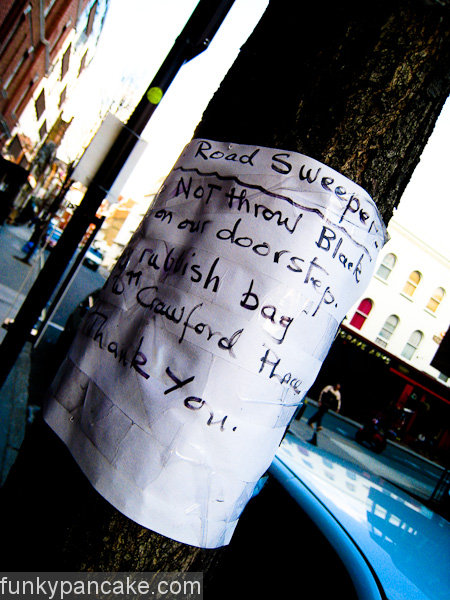 Road Sweeper-
NOT throw Black
on our doorstep.
rubbish bag
Crawford Place
Thank You.
funkypancake.com